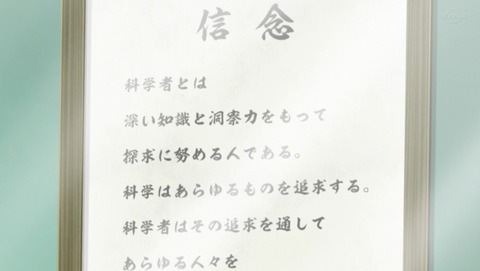 信念
科学者とは
深い知識と洞察力をもって
探求に努める人である。
科学はあらゆるものを追求する。
科学者はその追求を通して
あらゆる人々を